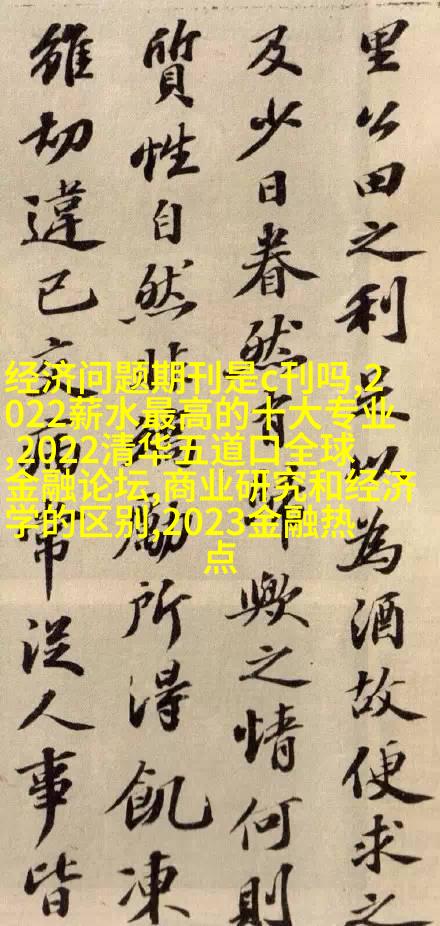 里公田之利足以為酒故便求之
及少日眷然有歟之情何則
質性自然非勵所得飢凍
雖切違己交病常従人事皆
经济问题期刊是c刊吗,2
022薪水最高的十大专业
,2022清华五道口全球
金融论坛,商业研究和经济
学的区别,2023金融热
点